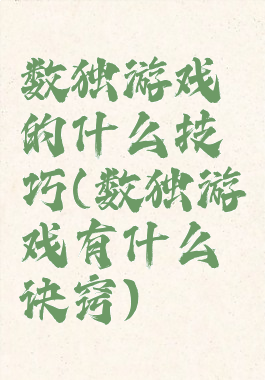 数独游戏
的什么技
巧(数独游
戏有什么
诀窍)